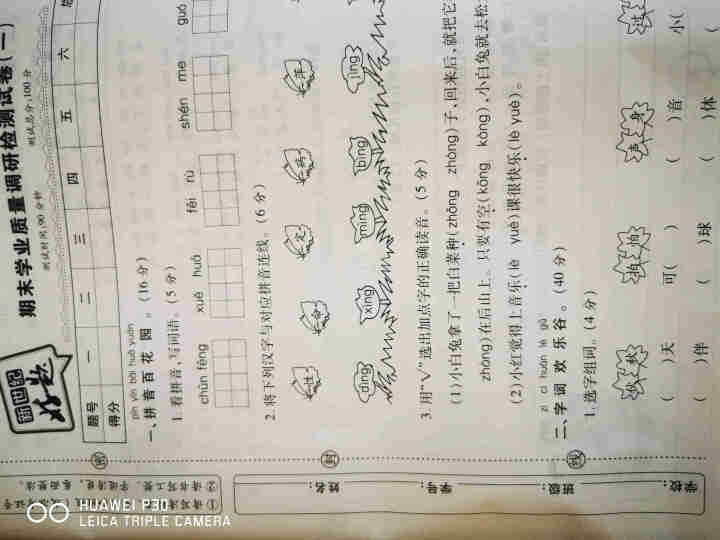 新世纪
好题
期末学业质量调研检测试卷(一)
测试时间:90分钟 测试总分:100分
题号 一 二 三 四 五 六
得分
pīn yīn bǎi huā yuán
一、拼音百花园。(16分)
1. 看拼音,写词语。(5分)
chūn fēng xuě huā fēi rù shén me guó
2. 将下列汉字与对应拼音连线。(6分)
dìng xìng míng bīng jīng
3. 用“√”选出加点字的正确读音。(5分)
(1)小白兔拿了一把白菜种(zhǒng zhòng)子,回来后,就把它
zhòng)在后山上。只要有空(kōng kòng),小白兔就去松
(2)小红觉得上音乐(lè yuè)课很快乐(lè yuè)。
zì cí huān lè gǔ
二、字词欢乐谷。(40分)
1. 选字组词。(4分)
声 身 过
( )天 可( ) ( )音 小(
( )伴 ( )球 ( )休 (
密
封
线
学校:
班级:
学号:
姓名:
HUAWEI P30
LEICA TRIPLE CAMERA